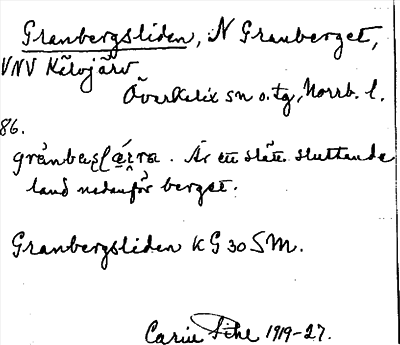 Granbergsliden, N Granberget,
VNV Kälvjärv
Överkalix sn o. tg, Norrb. l.
86.
Är ett slätt sluttande
land nedanför berget.
Granbergsliden KG 30 SM.
Carin Pihl 1919-27.